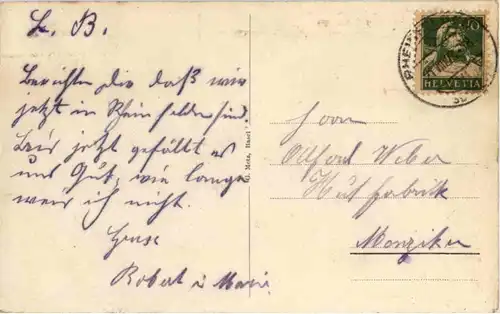 L. B.
Berichten Dir daß wir
jetzt in Rheinfelden sind
bis jetzt gefällt es
uns Gut, wie lange
weis ich nicht.
Gruss
Robert u Marie
10
HELVETIA
RHEINF
Metz, Basel
Herrn
Alfred Weber
Hutfabrik
Menziken